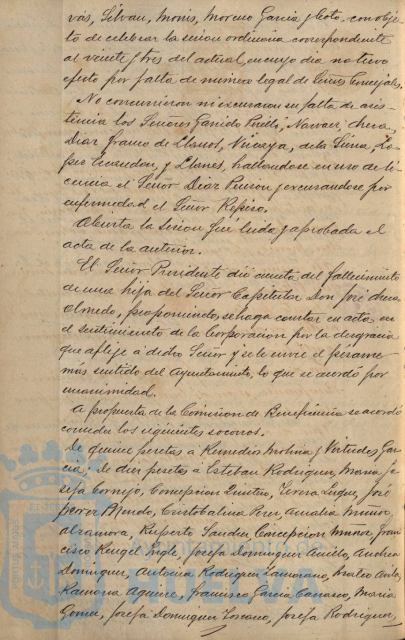 vás, Silvan, Monis, Moreno Garcia y Soto, con obje-
to de celebrar la sesion ordinaria correspondiente
al veinte y tres del actual, en cuyo dia no tuvo
efecto por falta de numero legal de Sres. Concejales.
No concurrieron ni excusaron su falta de asis-
tencia los Señores Garrido Perelló, Narvaez, Checa,
Diaz Franco de Llanos, Vizcaya, de la Lima, Lo-
pez y Llanes, hallandose en uso de li-
cencia el Señor Diaz y excusandose por
enfermedad el Señor Repiso.
Abierta la sesion fué leida y aprobada el
acta de la anterior.
El Señor Presidente dió cuenta del fallecimiento
de una hija del Señor Capitular Don José Checa
Olmedo, proponiendo, se haga constar en acta en
el sentimiento de la Corporacion por la desgracia
que aflije á dicho Señor y se le envie el pésame
más sentido del Ayuntamiento, lo que se acordó por
unanimidad.
A propuesta de la Comision de Beneficencia se acordó
conceder los siguientes socorros.
De quince pesetas á Remedios Molina y Virtudes Gar-
cia; De diez pesetas á Esteban Rodriguez, Maria Jo-
sefa Cornejo, Concepcion, Teresa Luque, José
Perez, Cristobalina Perez, Amalia Muñoz,
Ruperto Sanchez, Concepcion Muñoz, Fran-
cisco Rengel, Josefa Dominguez, Andrea
Dominguez, Antonia Rodriguez Zamorano,
Ramona Aguirre, Francisco Garcia Carrasco, Maria
Gomez, Josefa Dominguez Loscano, Josefa Rodriguez,